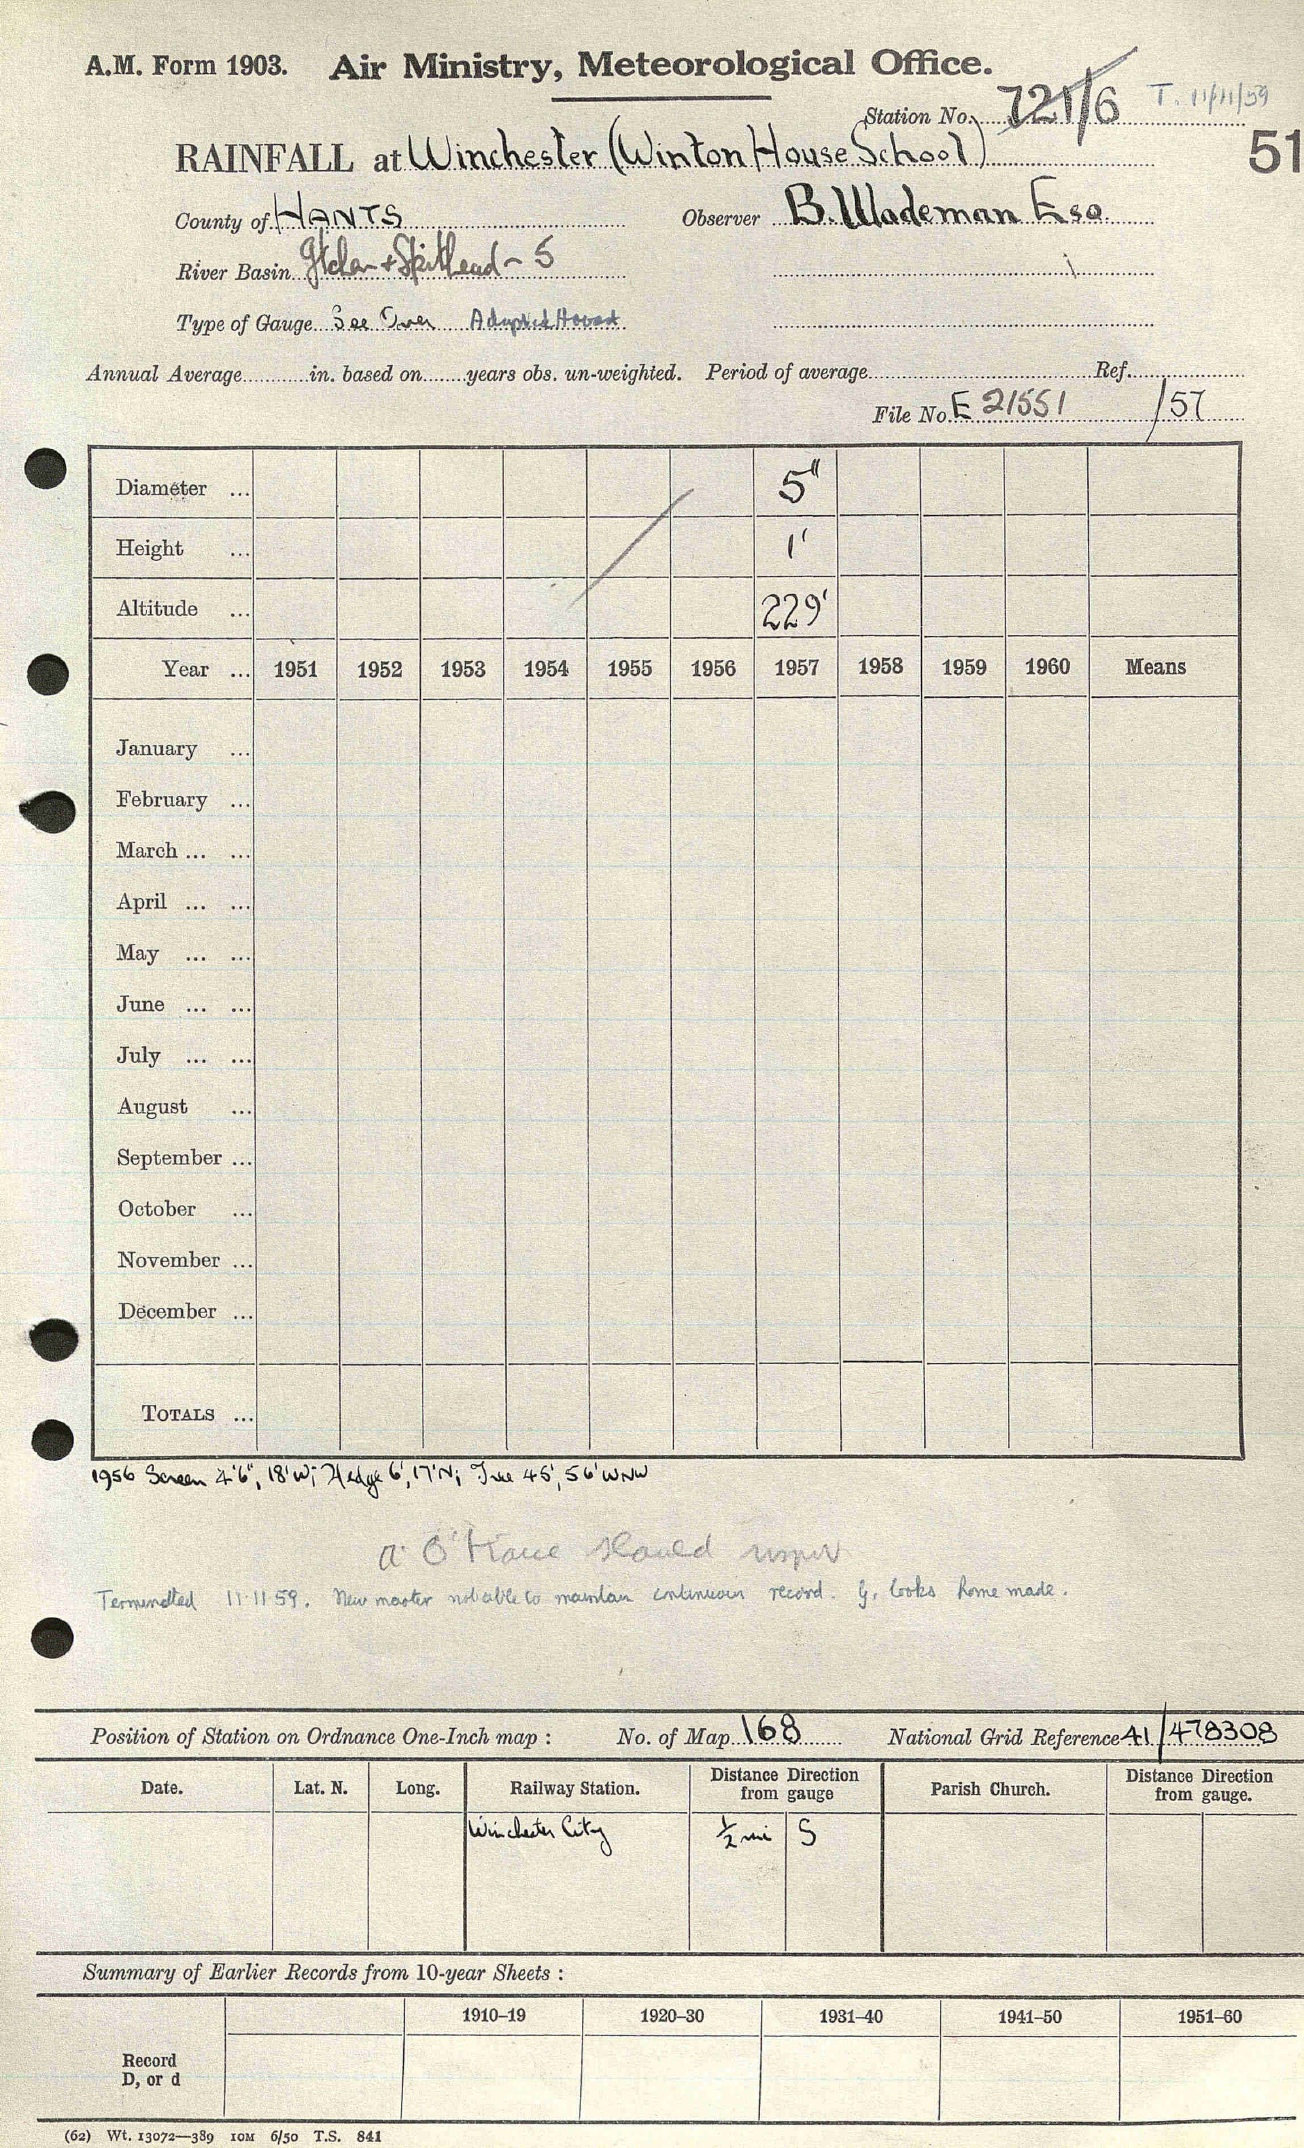 A.M. Form 1903. Air Ministry, Meteorological Office.
Station No. 721/6 T. 11/11/59
51
RAINFALL at Winchester (Winton House School)
County of HANTS Observer B. Wademan Esq.
River Basin Itchen + Spithead - 5
Type of Gauge See Over Adapted
Annual Average in. based on years obs. un-weighted. Period of average Ref.
File No. E 21551 /57
Diameter ... 5"
Height ... 1'
Altitude ... 229'
Year ... 1951 1952 1953 1954 1955 1956 1957 1958 1959 1960 Means
January ...
February ...
March ... ...
April ... ...
May ... ...
June ... ...
July ... ...
August ...
September ...
October ...
November ...
December ...
TOTALS ...
1956 Screen 4'6", 18'W; Hedge 6', 17'N; Tree 45', 56' WNW
should
Terminated 11.11.59. New master not able to maintain continuous record. G. looks home made.
Position of Station on Ordnance One-Inch map : No. of Map 168 National Grid Reference 41/478308
Date. Lat. N. Long. Railway Station. Distance Direction from gauge Parish Church. Distance Direction from gauge.
Winchester City ½ mi S
Summary of Earlier Records from 10-year Sheets :
1910–19 1920–30 1931–40 1941–50 1951–60
Record
D, or d
(62) Wt. 13072—389 10M 6/50 T.S. 841